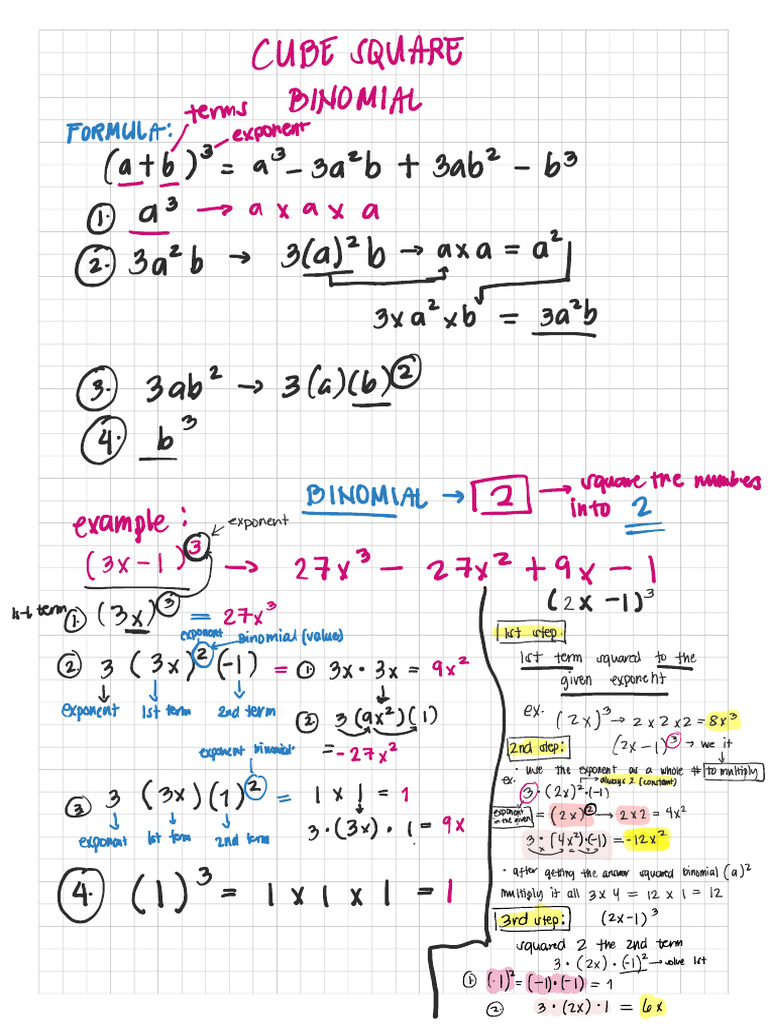 CUBE SQUARE
BINOMIAL
terms
FORMULA:
exponent
(a+b)³ = a³ - 3a²b + 3ab² - b³
1. a³ → a x a x a
2. 3a²b → 3(a)²b → a x a = a²
3 x a² x b = 3a²b
3. 3ab² → 3(a)(b)²
4. b³
BINOMIAL → 2 → square the numbers
into 2
example:
exponent
(3x-1)³ → 27x³ - 27x² + 9x - 1
1st term 1. (3x)³ = 27x³
exponent Binomial (values)
2 3 (3x)² (-1) = 1. 3x · 3x = 9x²
exponent 1st term 2nd term
2. 3(9x²)(1)
= -27x²
exponent binomial
3 3 (3x)(1)² = 1 x 1 = 1
3·(3x)·1 = 9x
exponent 1st term 2nd term
4. (1)³ = 1 x 1 x 1 = 1
(2x-1)³
1st step:
1st term squared to the
given exponent
ex. (2x)³ → 2 x 2 x 2 = 8x³
2nd step: (2x-1)³ → we it
· use the exponent as a whole # to multiply
ex. always 2 (constant)
3·(2x)²·(-1)
exponent in the given = (2x)² → 2x2 = 4x²
3·(4x²)·(-1) = -12x²
· after getting the answer squared binomial (a)²
multiply it all 3 x 4 = 12 x 1 = 12
3rd step: (2x-1)³
squared 2 the 2nd term
3·(2x)·(-1)² → solve 1st
1. (-1)² = (-1)·(-1) = 1
2. 3·(2x)·1 = 6x